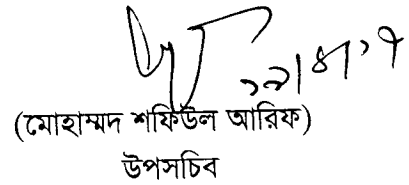 ১৯।৪।১৭
(মোহাম্মদ শফিউল আরিফ)
উপসচিব